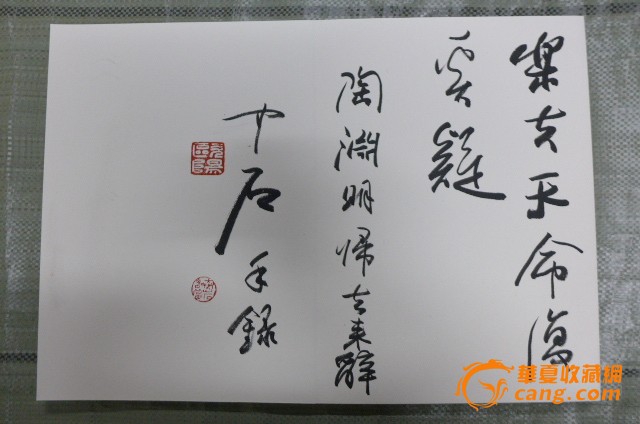 樂夫天命復
奚疑
陶淵明歸去來辭
中石手錄
華夏收藏網
cang.com